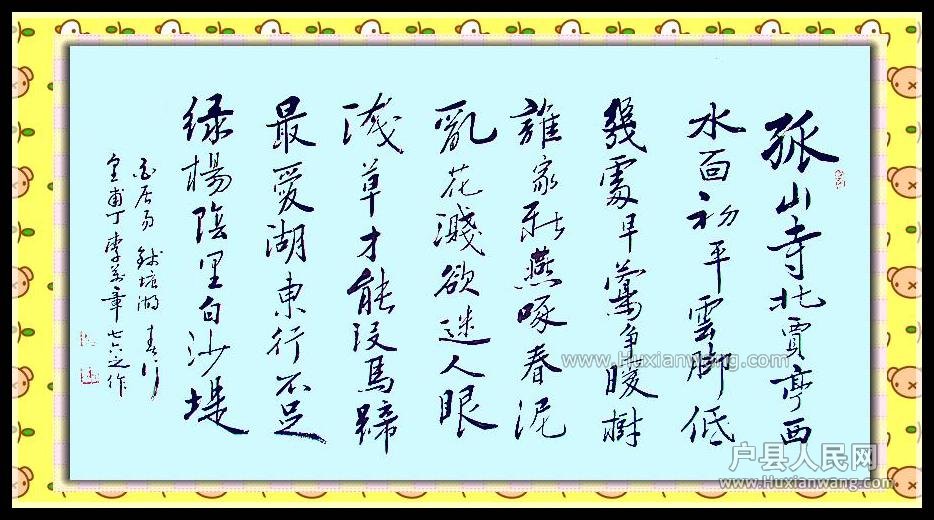 孤山寺北賈亭西
水面初平雲脚低
幾處早鶯争暖樹
誰家新燕啄春泥
亂花濺欲迷人眼
浅草才能没馬蹄
最愛湖東行不足
绿楊陰里白沙堤
白居易 钱塘湖 春行
甫丁李章七六之作
www.Huxianwang.com
户县人民网
www.Huxianwang.com